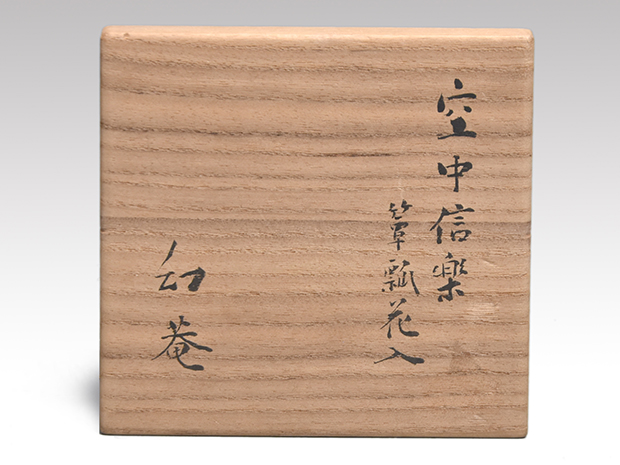 空中信楽
箪瓢花入
幻菴